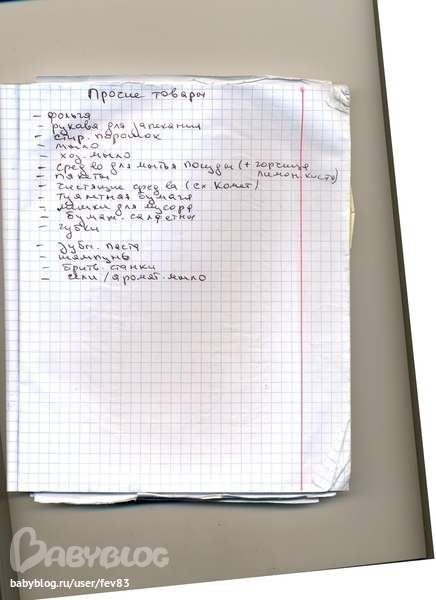 Прочие товары
- фольга
- рукава для запекания
- стир. порошок
- мыло
- хоз. мыло
- сред во для мытья посуды (+ горчица
- пакеты лимон. кисто)
- чистящие сред ва (сх. Комет)
- туалетная бумага
- мешки для мусора
- бумаж. салфетки
- губки
- зубн. паста
- шампунь
- бритв. станки
- гели / аромат. мыло
BABYBLOG
babyblog.ru/user/fev83